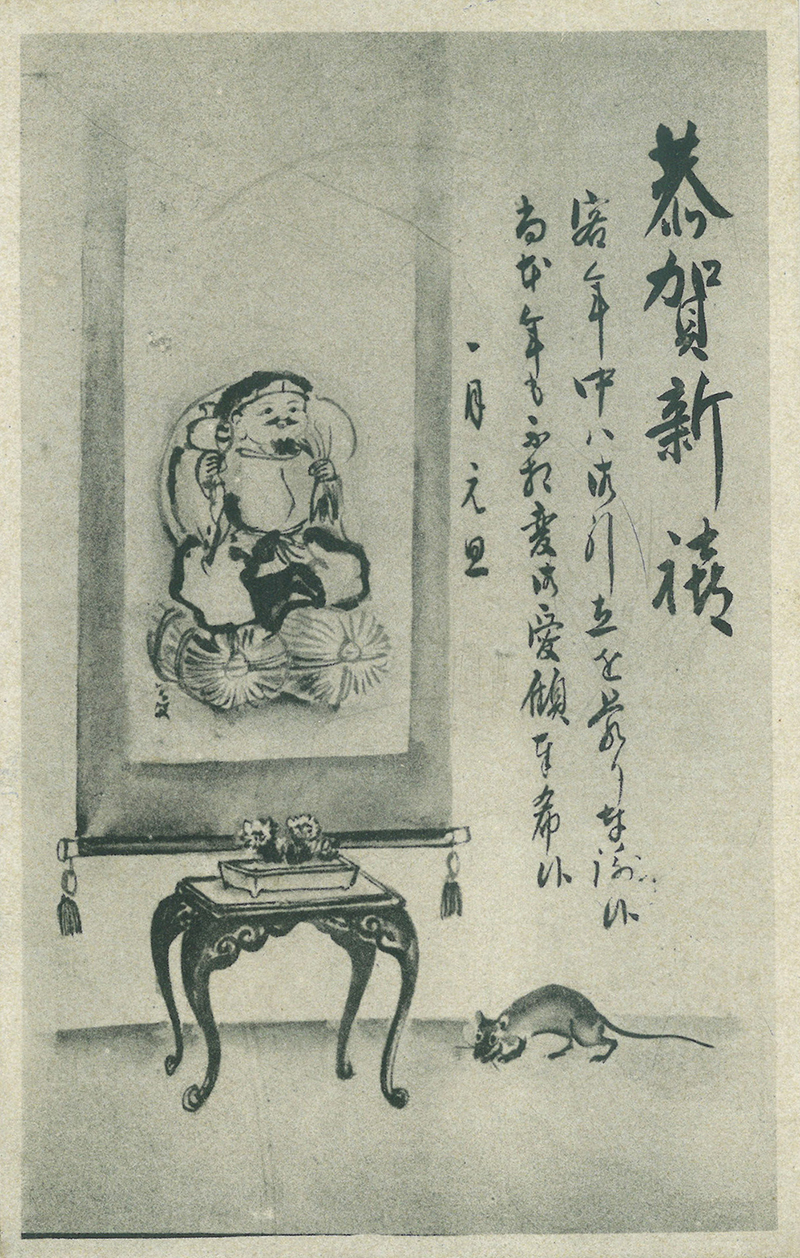 恭賀新禧
客年中ハ御引立を蒙り奉謝候
尚本年も不相変御愛顧奉希候
一月元旦